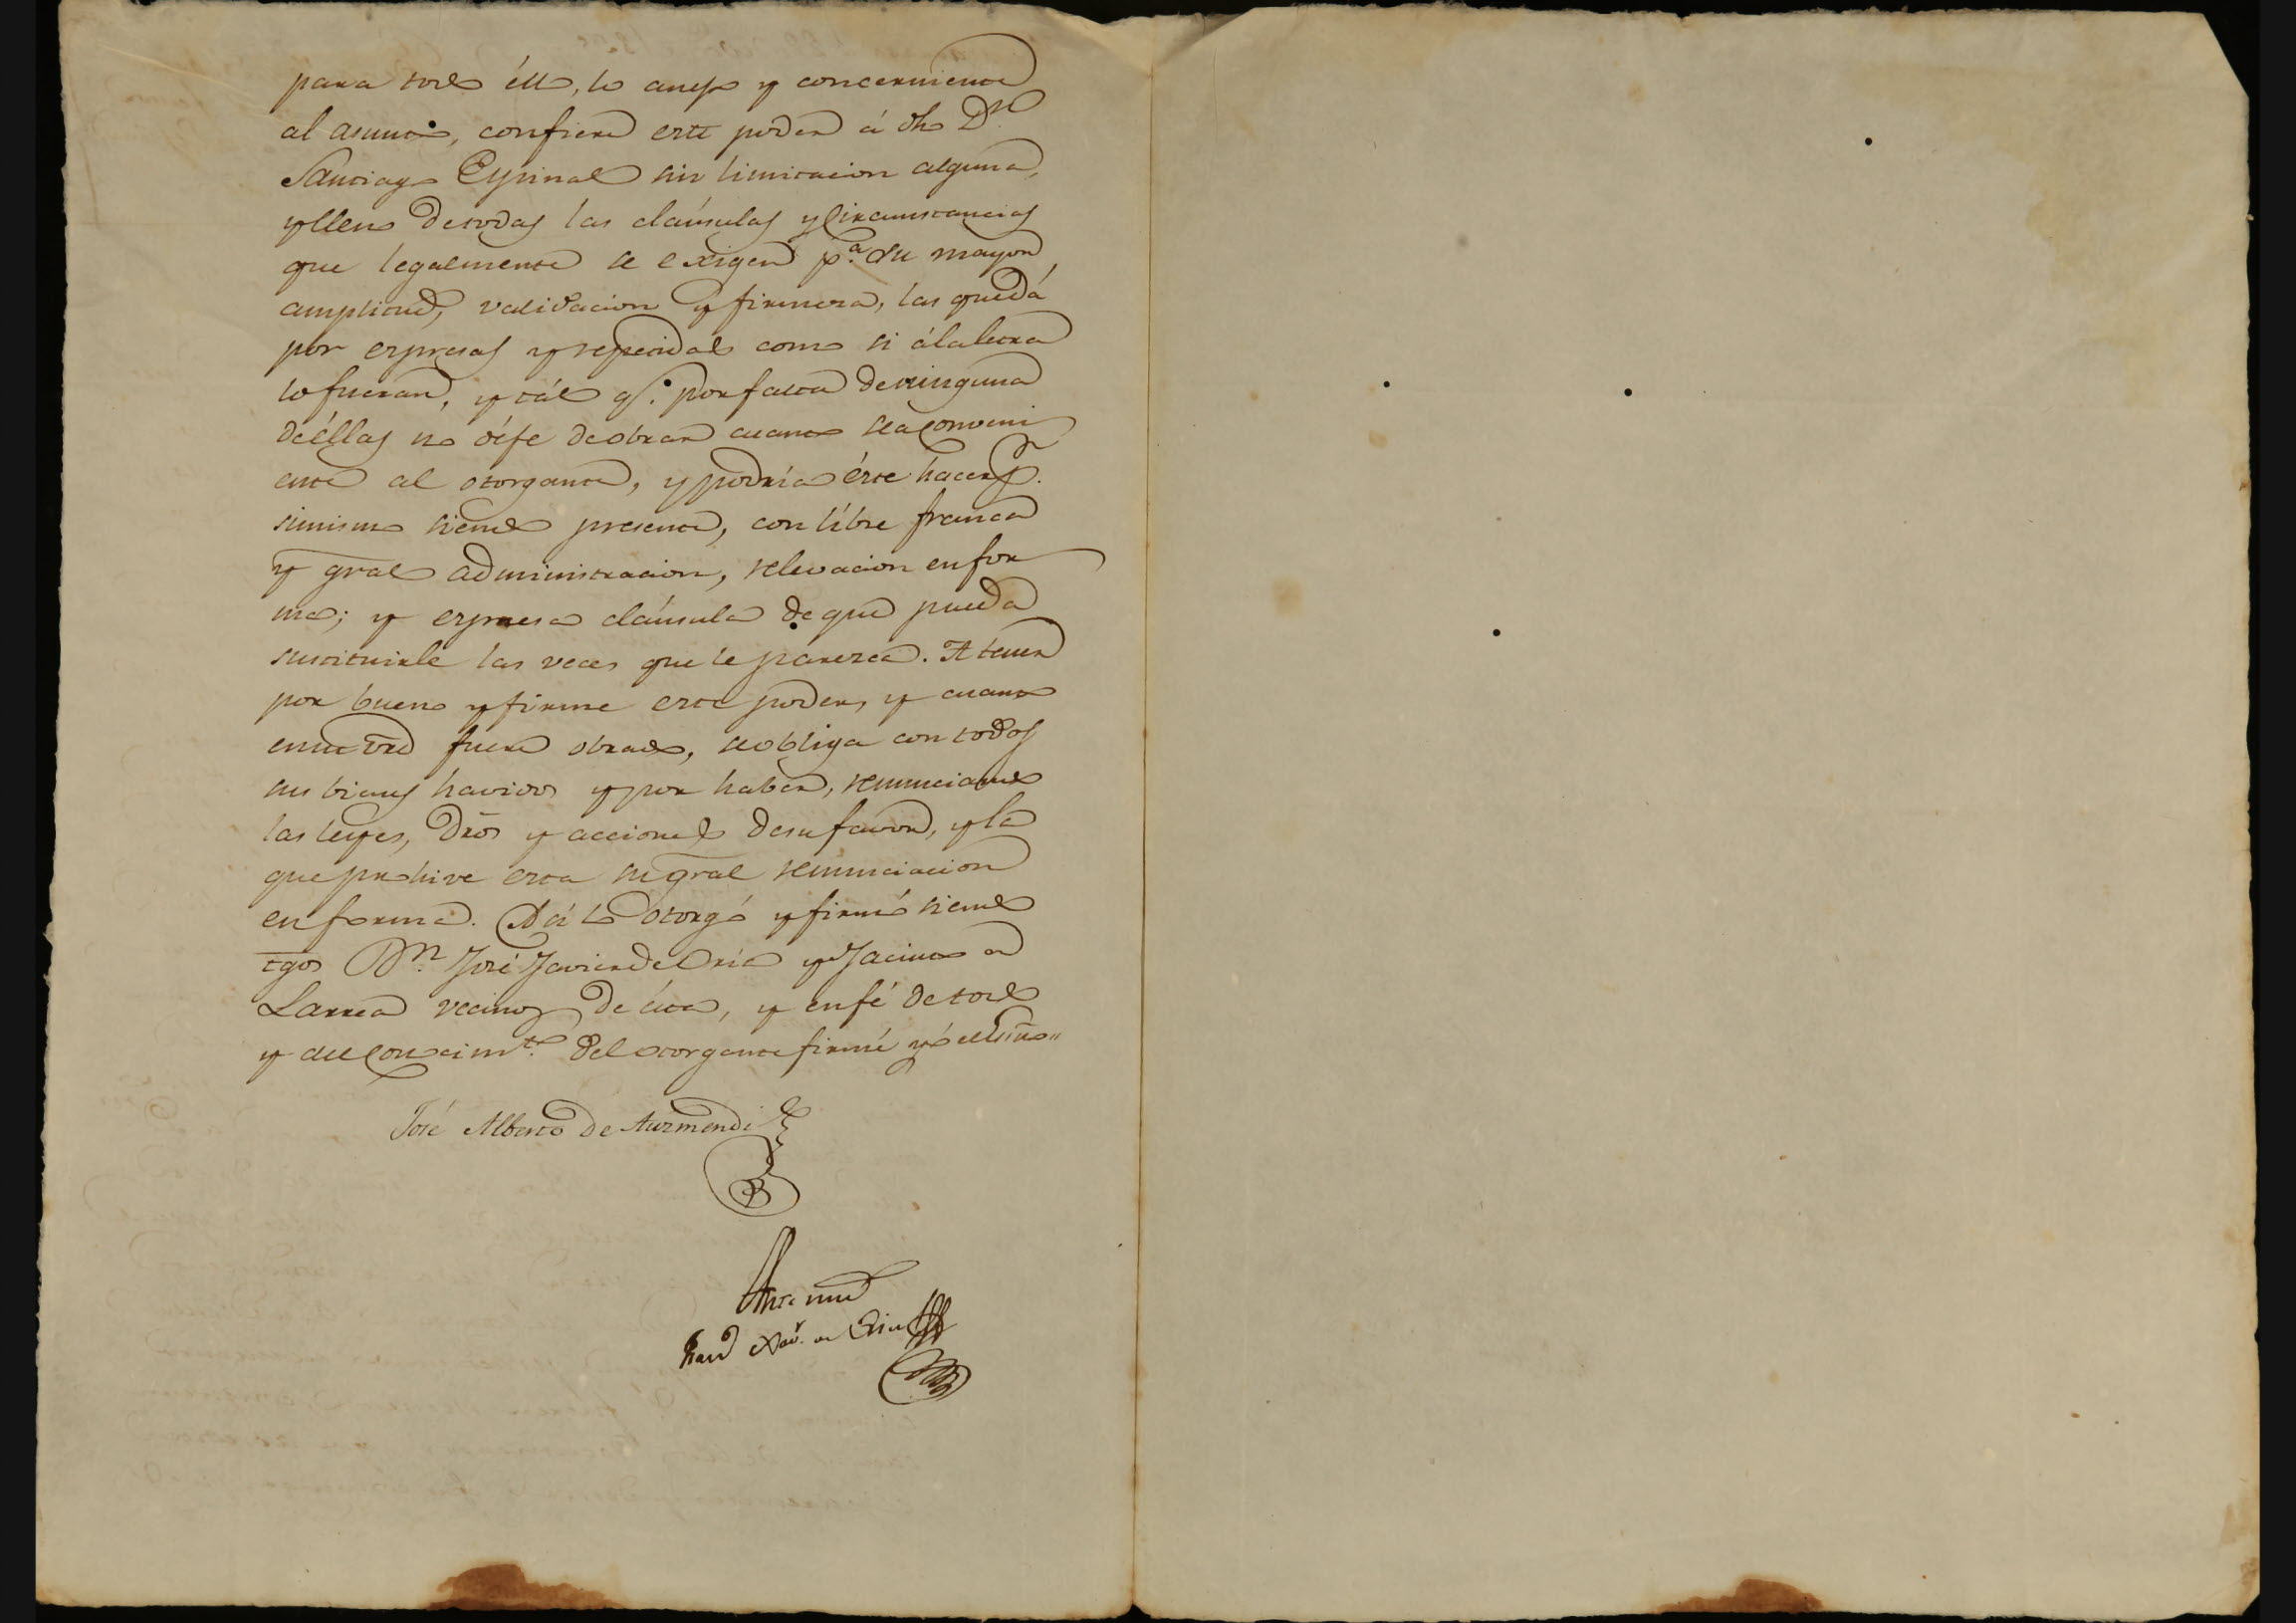 para todo éllo, lo anejo y concerniente
al asunto, confiere este poder á dho Dn.
Santiago Espinal sin limitacion alguna,
y lleno de todas las cláusulas y circunstancias
que legalmente se exigen pa. su mayor
amplitud, validacion y firmeza, las que dá
por expresas y repetidas como si á la letra
lo fueran, y tál qe. por falta de ninguna
de éllas no déje de obrar cuanto sea conveni
ente al otorgante, y podría éste hacer pr.
si mismo siendo presente, con líbre franca
y gral administracion, relevacion en for
ma; y expresa cláusula de que pueda
sustituirle las veces que le parezca. A tener
por bueno y firme este poder, y cuanto
en su vrd fuere obrado, se obliga con todos
sus bienes havidos y por haber, renunciando
las leyes, dros y acciones de su favor, y la
que prohive esta su gral renunciacion
en forma. Asi lo otorgó y firmó siendo
tgos Dn. José Javier del Rio y Jacinto de
Larrea vecinos de ésta, y en fé de todo
y del conocimto. del otorgante firmé yó el Ssño"
José Alberto de Aurmendi
Ante mi
Xavr. de